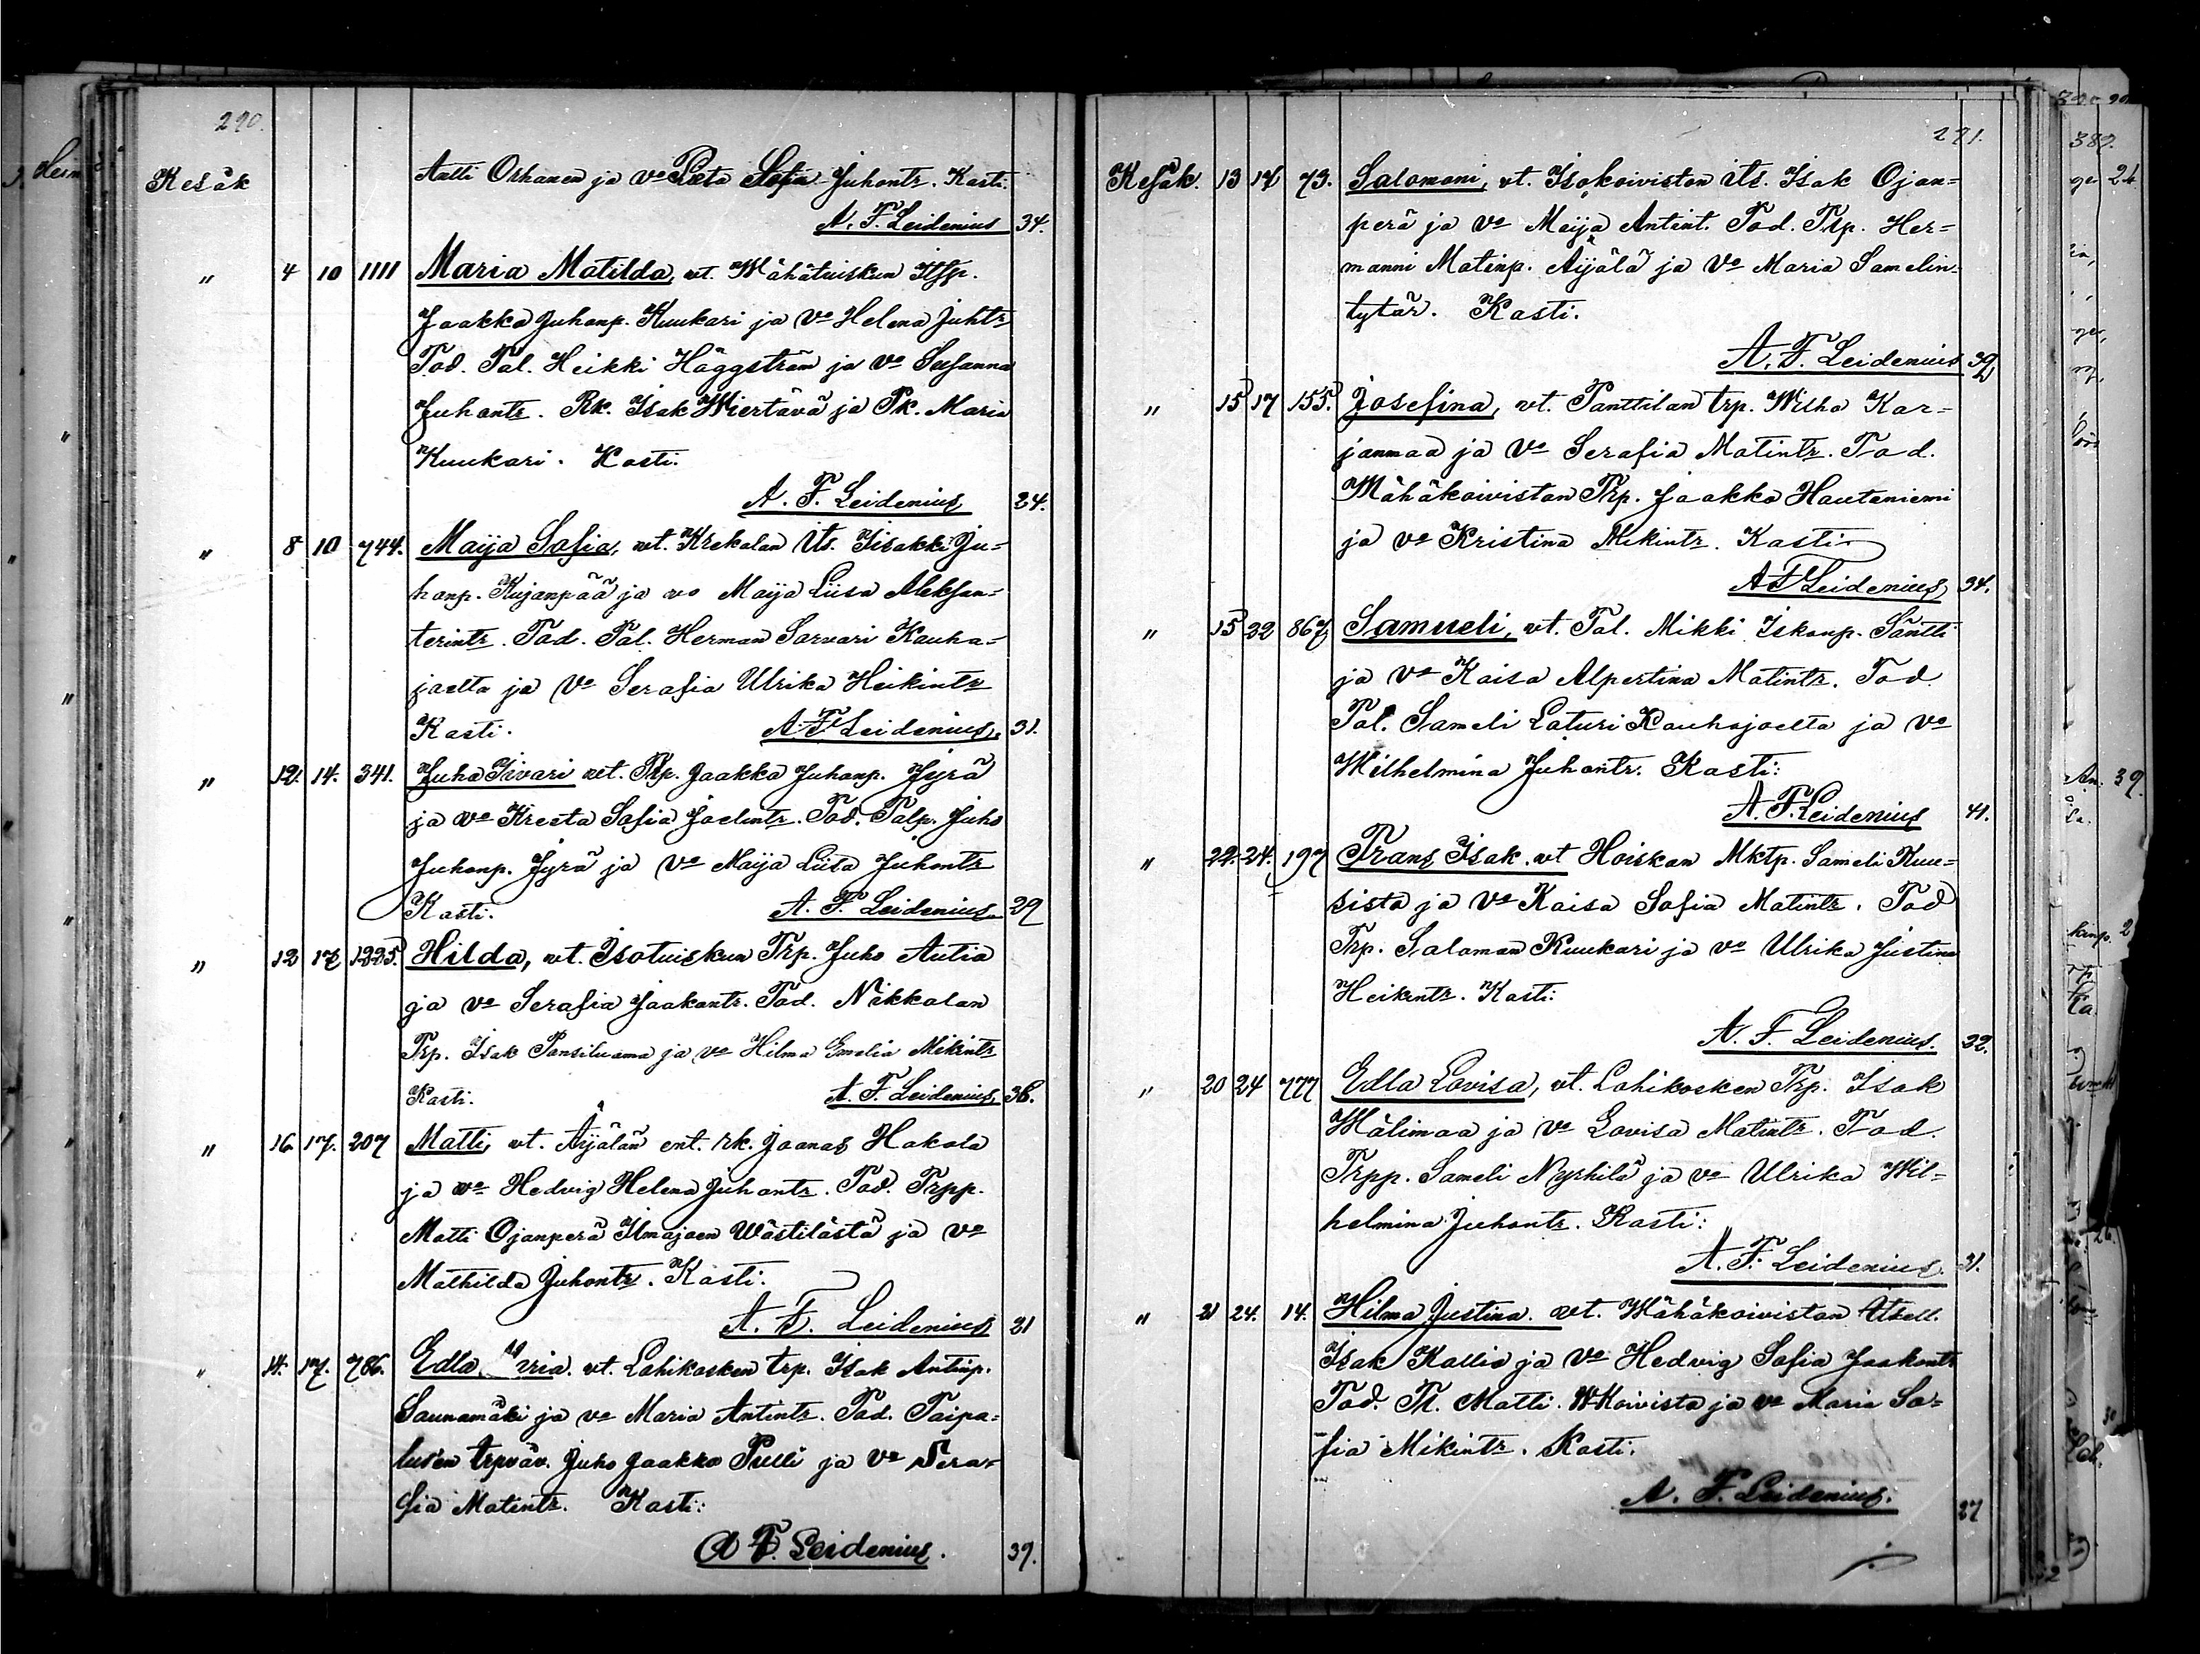 290.
Kesäk Antti Orhanen ja vo Preeta Sofia Juhontr. Kasti.
A. F. Leidenius 34.
" 4 10 1111 Maria Matilda, vt. Wähätuiskun Itsp.
Jaakko Juhonp. Kuukari ja Vo Helena Juhtr
Tod. Tal. Heikki Häggström ja vo Susanna
Juhontr. Rk. Isak Wiertävä ja Pk. Maria
Kuukari. Kasti.
A. F. Leidenius 24.
" 8 10 744. Maija Sofia, vt. Krekolan Its. Iisakki Ju=
honp. Kujanpää ja vo Maija Liisa Aleksan=
terintr. Tod. Tal. Herman Sarvari Kauha=
joelta ja Vo Serafia Ulrika Heikintr
Kasti. A. F Leidenius. 31.
" 12. 14. 341. Juho Iivari vt. Trp. Jaakko Juhonp. Jyrä
ja vo Kreeta Sofia Joelintr. Tod. Talp. Juho
Juhonp. Jyrä ja Vo Maija Liisa Juhontr
Kasti. A. F. Leidenius 29
" 12 17 1225. Hilda, vt. Isotuiskun Trp. Juho Autio
ja vo Serafia Jaakontr. Tod. Nikkolan
Trp. Isak Pansiluoma ja vo Hilma Emelia Mikintr
Kasti. A. F. Leidenius 36.
" 16. 17. 207 Matti, vt. Äijälän ent. rk. Joonas Hakola
ja vo Hedvig Helena Juhontr. Tod. Trpp.
Matti Ojanperä Ilmajoen Wästilästä ja vo
Mathilda Juhontr. Kasti.
A. F. Leidenius 21
" 14. 17. 786. Edla Maria. vt. Lohikosken trp. Isak Antinp.
Saunamäki ja vo Maria Antintr. Tod. Taipa=
lusen trpväv. Juho Jaakko Pulli ja Vo Sera=
fia Matintr. Kasti:
A F. Leidenius. 39.
291.
Kesäk. 13 17 73. Salomoni, vt. Isokoiviston Its. Isak Ojan=
perä ja Vo Maija Antint. Tod. Trp. Her=
manni Matinp. Äijälä ja Vo Maria Samelin=
tytär. Kasti.
A. F. Leidenius 39
" 15 17 155. Josefina, vt. Panttilan trp. Wilho Kar=
janmaa ja Vo Serafia Matintr. Tod.
Wähäkoiviston Trp. Jaakko Hautaniemi
ja vo Kristina Mikintr. Kasti
A F Leidenius 34.
" 15 22 867, Samueli, vt. Tal. Mikki Iskonp. Säntti
ja Vo Kaisa Alpertina Matintr. Tod.
Tal. Sameli Laturi Kauhajoelta ja vo
Wilhelmina Juhontr. Kasti:
A. F. Leidenius 41.
" 22. 24. 197 Frans Isak. vt Hoiskan Mktp. Sameli Kuu=
sisto ja Vo Kaisa Sofia Matintr. Tod
Trp. Saloman Kuukari ja vo Ulrika Justina
Heikintr. Kasti:
A. F. Leidenius. 32.
" 20 24 777 Edla Lovisa, vt. Lohikosken Trp. Isak
Wälimaa ja Vo Lovisa Matintr. Tod.
Trpp. Sameli Nyrhilä ja vo Ulrika Wil=
helmina Juhontr. Kasti:
A. F. Leidenius. 31.
" 21 24. 14. Hilma Justina. vt. Wähäkoiviston Itsell.
Isak Kallio ja Vo Hedvig Sofia Jaakontr
Tod. Tl. Matti W Koivisto ja vo Maria So=
fia Mikintr. Kasti.
A. F. Leidenius. 27